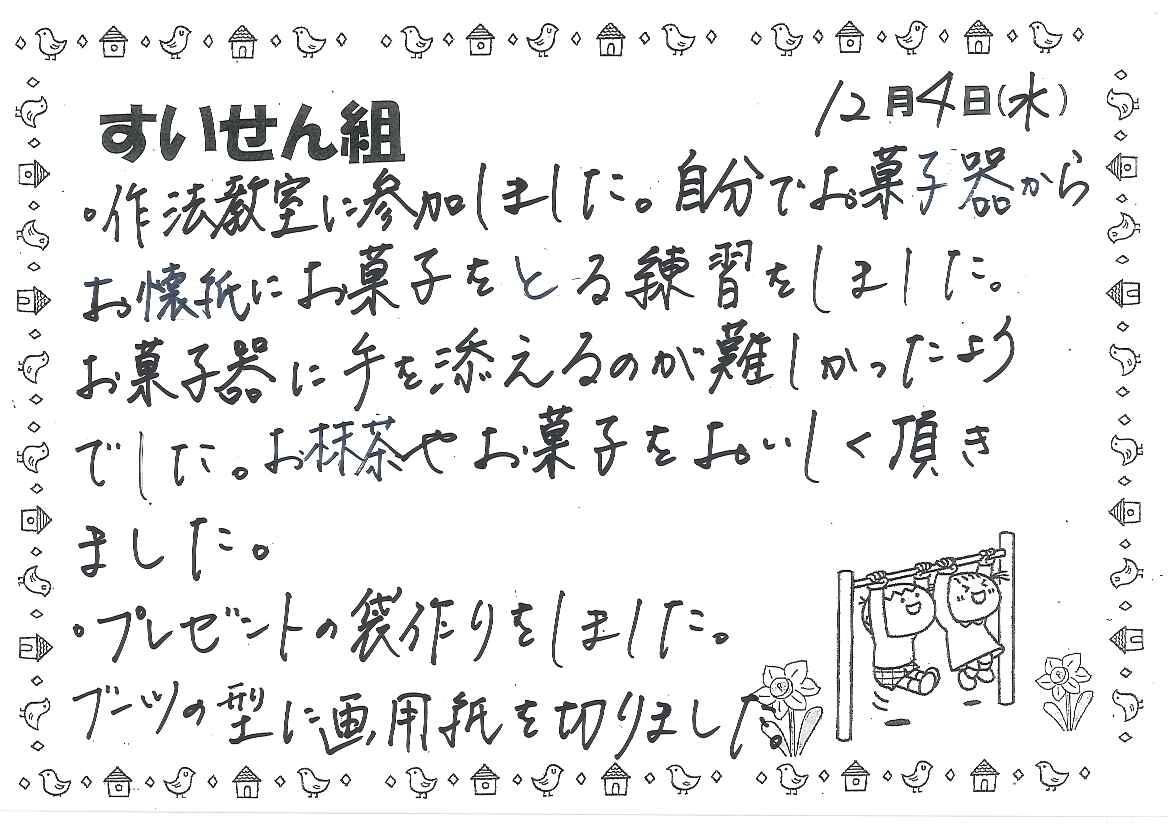 すいせん組
12月4日(水)
・作法教室に参加しました。自分でお菓子器から
お懐紙にお菓子をとる練習をしました。
お菓子器に手を添えるのが難しかったよう
でした。お抹茶やお菓子をおいしく頂き
ました。
・プレゼントの袋作りをしました。
ブーツの型に画用紙を切りました。